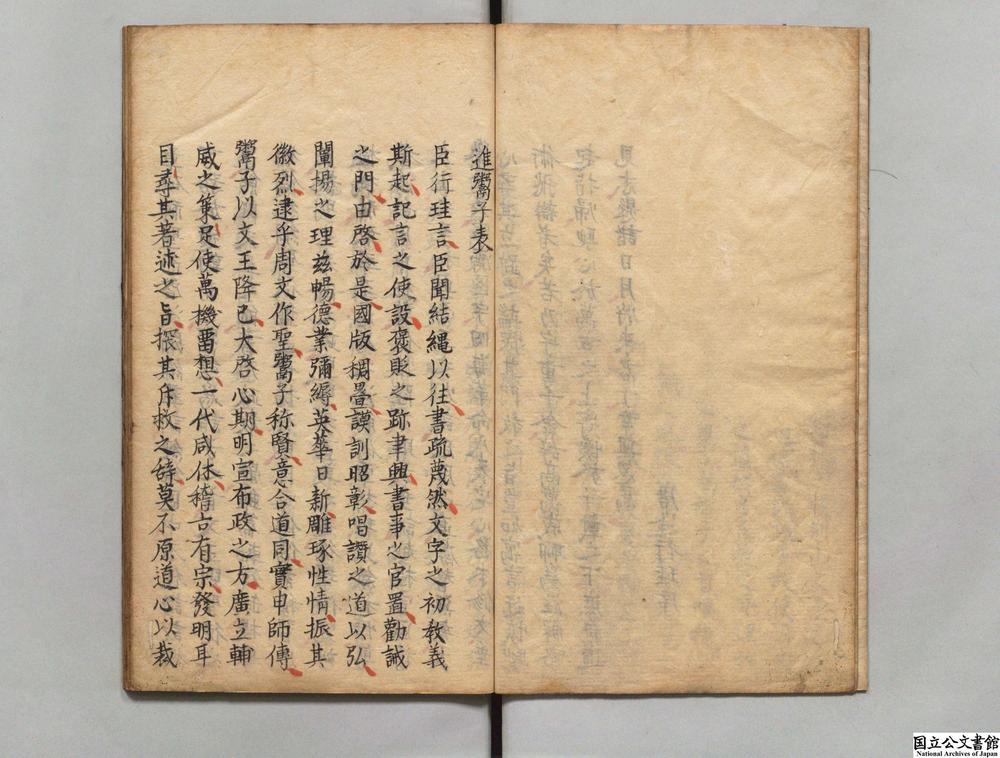 進鬻子表
臣行珪言臣聞結繩以往書疏蔑然文字之初教義
斯起記言之使設褒貶之跡聿興書事之官置勸誡
之門由啓於是國版稠疊謨訓昭彰唱讚之道以弘
闡揚之理玆暢德業彌縟英華日新雕琢性情振其
徽烈逮乎周文作聖鬻子称賢意合道同實申師傳
鬻子以文王降己大啓心期明宣布政之方廣立輔
威之策足使萬機留想一代咸休稽古有宗發明耳
目尋其著迹之旨探其斥救之辞莫不原道心以裁
国立公文書館
National Archives of Japan